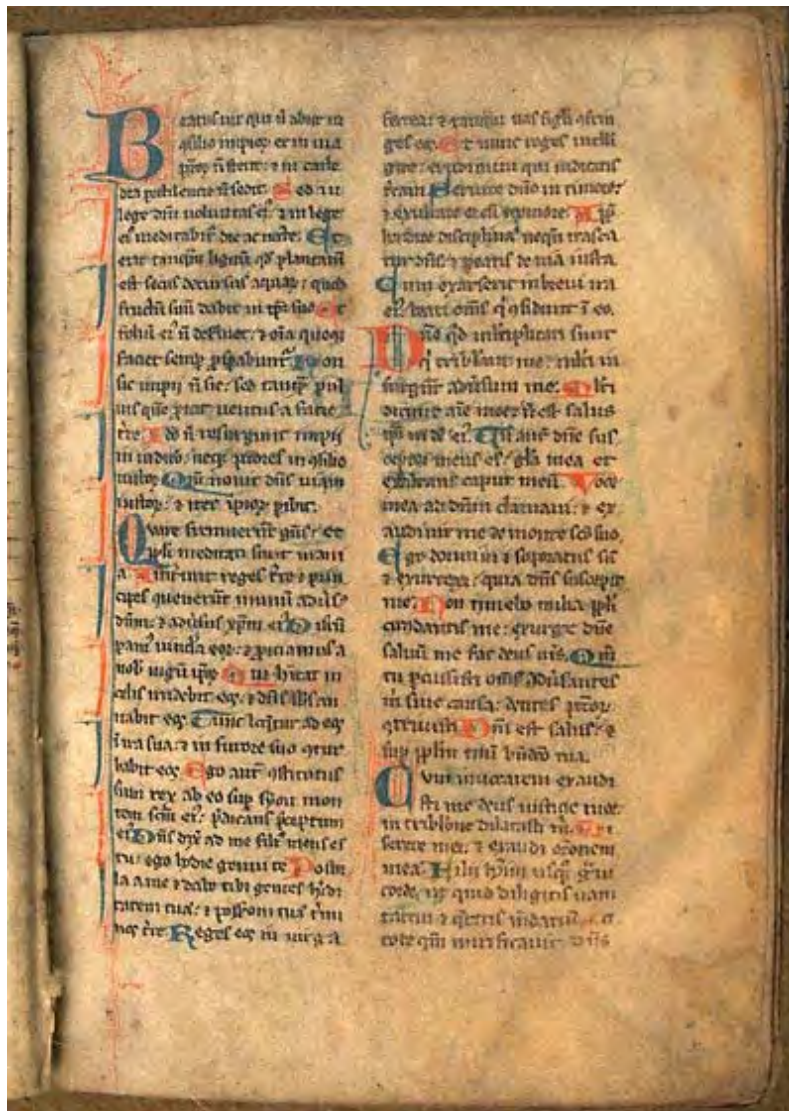 Beatus uir qui ñ abiit in
ɔsilio impioꝝ et in uia
pc̄toꝝ ñ stetit: ⁊ in cathe
dra pestilencie ñ sedit. Sed in
lege dñi uoluntas eiꝰ ⁊ in lege
eiꝰ meditabit᷑ die ac nocte. Et
erit tanquā lignū qđ plantatū
est secus decursus aquaꝝ: quod
fructū suū dabit in tp̄e suo. Et
foliū eiꝰ ñ defluet: ⁊ oīa quecūqꝫ
faciet semp̱ ꝓsꝑabunt᷑. Non
sic impii ñ sic: sed tanqͣ̄ pul
uis quē ꝓicit uentus a facie
t̄re. Ideo ñ resurgunt impii
in iudicio: neqꝫ pc̄tores in ɔsilio
iustoꝝ. Qm̄ nouit dñs uiam
iustoꝝ: ⁊ iter īpioꝝ ꝑibit.
Quare fremuerūt gētes: et
ppl̄i meditati sunt inani
a. Astiterunt reges t̄re ⁊ prin
cipes ɔuenerūt in unū adūsꝰ
dñm: ⁊ adūsus xp̄m eiꝰ. Dirūpa
mꝰ uincl̄a eoꝝ: ⁊ ꝓiciamus a
nob̄ iugū ip̄oꝝ. Qui h̄itat in
celis irridebit eos: ⁊ dñs subsan
nabit eos. Tunc loq̄tur ad eos
ī ira sua: ⁊ in furore suo ɔtur
babit eos. Ego autē ɔstitutus
sum rex ab eo sup̱ syon mon
tem sc̄m eiꝰ: p̄dicans p̄ceptum
eiꝰ. Dñs dix̄ ad me filiꝰ meus es
tu: ego hodie genui te. Postu
la a me ⁊ dabo tibi gentes h̄edi
tatem tuā: ⁊ possessionē tuā t̄mi
nos t̄re. Reges eos in uirga
ferrea: ⁊ tanquā uas figl̄i ɔfrin
ges eos. Et nunc reges intelli
gite: erudimini qui iudicatis
terram. Seruite dño in timore:
⁊ exultate ei cū tremore. App̄
hendite disciplinā neqn̄ irasca
tur dñs: ⁊ ꝑeatis de uia iusta.
Cum exarserit in breui ira
eiꝰ: beati om̄s q̇ ɔfidunt ī eo.
Dñe qđ ml̄tiplicati sunt
q̇ tribulant me: ml̄ti in
surgūt adūsum me. Ml̄ti
dicunt aīe mee: ñ est salus
ip̄i in dō eiꝰ. Tu autē dñe sus
ceptor meus es: gl̄a mea et
exaltans caput meū. Voce
mea ad dñm clamaui: ⁊ ex
audiuit me de monte sc̄o suo.
Ego dormiui ⁊ soporatus sū
⁊ exurrexi: quia dñs suscepit
me. Non timebo milia ppl̄i
circūdantis me: exurge dñe
saluū me fac deus mꝰ. Qm̄
tu ꝑcussisti om̄s adūsantes
m̄ sine causa: dentes pc̄toꝝ
ɔtriuisti. Dñi est salus: ⁊
sup̱ ppl̄m tuū bn̄dc̄o tua.
Cum inuocarem exaudi
uit me deus iusticie mee:
in tribl̄one dilatasti m̄. Mi
serere mei: ⁊ exaudi or̄onem
meā. Filii hoīm usqꝫ quo gͣui
corde: ut quid diligitis uani
tatem ⁊ q̄ritis mendatiū. Sci
tote qm̄ mirificauit dñs